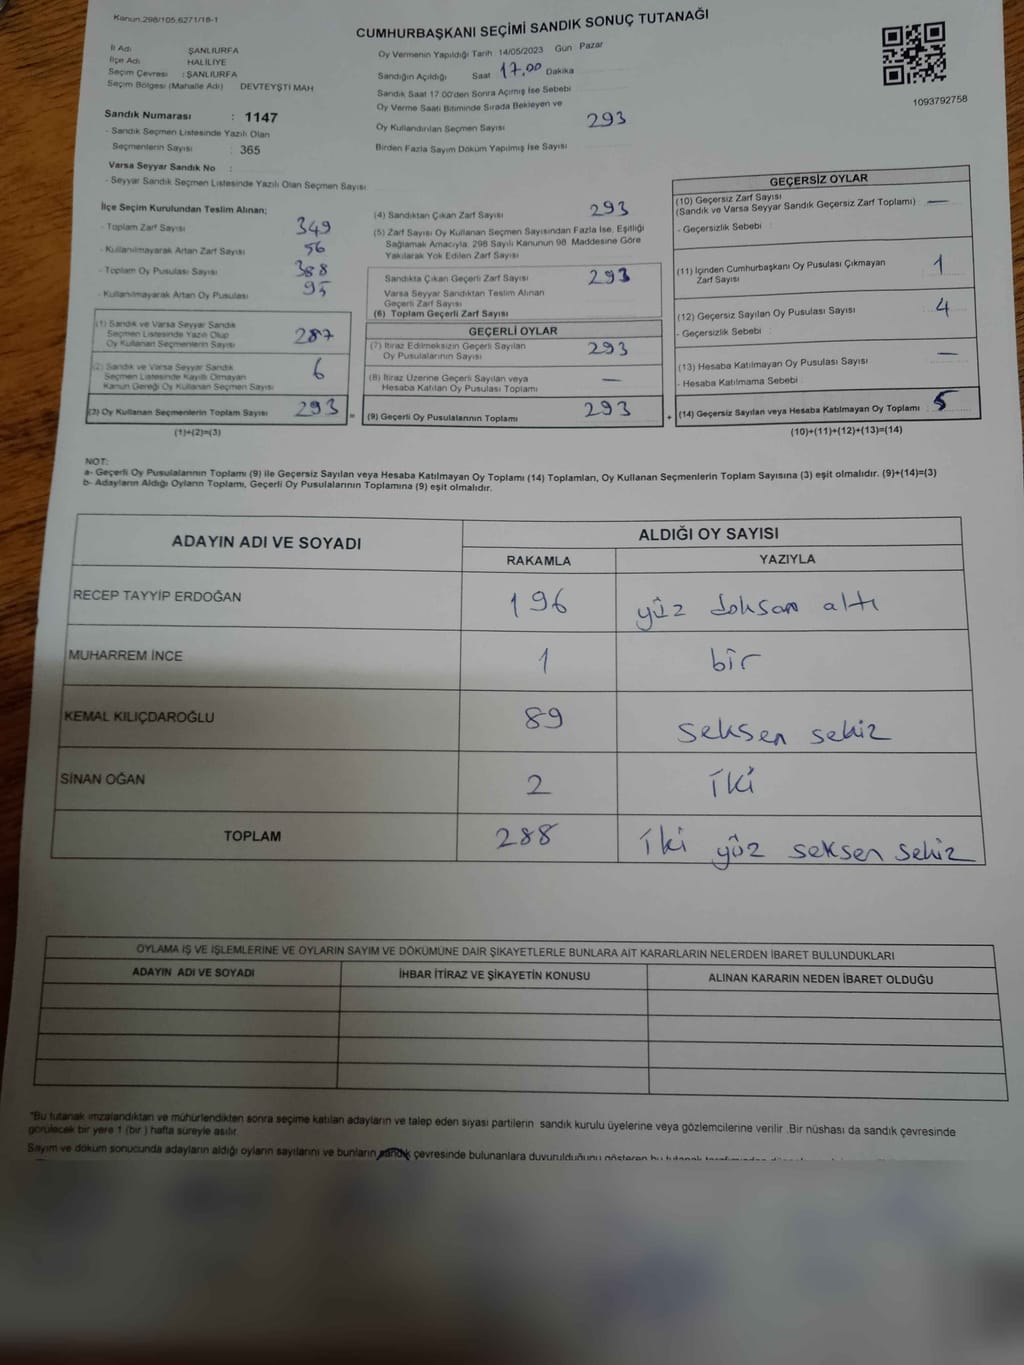 Kanun.298/105,6271/16-1
CUMHURBAŞKANI SEÇİMİ SANDIK SONUÇ TUTANAĞI
İl Adı ŞANLIURFA
İlçe Adı HALİLİYE
Seçim Çevresi : ŞANLIURFA
Seçim Bölgesi (Mahalle Adı) DEVTEYŞTİ MAH
Sandık Numarası : 1147
- Sandık Seçmen Listesinde Yazılı Olan
Seçmenlerin Sayısı : 365
Varsa Seyyar Sandık No :
- Seyyar Sandık Seçmen Listesinde Yazılı Olan Seçmen Sayısı
Oy Vermenin Yapıldığı Tarih 14/05/2023 Gün Pazar
Sandığın Açıldığı Saat 17.00 Dakika
Sandık Saat 17.00'den Sonra Açımış İse Sebebi
Oy Verme Saati Bitiminde Sırada Bekleyen ve
Oy Kullandırılan Seçmen Sayısı 293
Birden Fazla Sayım Döküm Yapılmış İse Sayısı
1093792758
İlçe Seçim Kurulundan Teslim Alınan;
- Toplam Zarf Sayısı 349
- Kullanılmayarak Artan Zarf Sayısı 56
- Toplam Oy Pusulası Sayısı 388
- Kullanılmayarak Artan Oy Pusulası 95
(1) Sandık ve Varsa Seyyar Sandık
Seçmen Listesinde Yazılı Olup
Oy Kullanan Seçmenlerin Sayısı 287
(2) Sandık ve Varsa Seyyar Sandık
Seçmen Listesinde Kayıtlı Olmayan
Kanun Gereği Oy Kullanan Seçmen Sayısı 6
(3) Oy Kullanan Seçmenlerin Toplam Sayısı 293 =
(1)+(2)=(3)
(4) Sandıktan Çıkan Zarf Sayısı 293
(5) Zarf Sayısı Oy Kullanan Seçmen Sayısından Fazla İse, Eşitliği
Sağlamak Amacıyla, 298 Sayılı Kanunun 98. Maddesine Göre
Yakılarak Yok Edilen Zarf Sayısı
Sandıkta Çıkan Geçerli Zarf Sayısı 293
Varsa Seyyar Sandıktan Teslim Alınan
Geçerli Zarf Sayısı
(6) Toplam Geçerli Zarf Sayısı
GEÇERLİ OYLAR
(7) İtiraz Edilmeksizin Geçerli Sayılan
Oy Pusulalarının Sayısı 293
(8) İtiraz Üzerine Geçerli Sayılan veya
Hesaba Katılan Oy Pusulası Toplamı —
(9) Geçerli Oy Pusulalarının Toplamı 293 +
GEÇERSİZ OYLAR
(10) Geçersiz Zarf Sayısı
(Sandık ve Varsa Seyyar Sandık Geçersiz Zarf Toplamı) —
- Geçersizlik Sebebi :
(11) İçinden Cumhurbaşkanı Oy Pusulası Çıkmayan
Zarf Sayısı 1
(12) Geçersiz Sayılan Oy Pusulası Sayısı 4
- Geçersizlik Sebebi :
(13) Hesaba Katılmayan Oy Pusulası Sayısı —
- Hesaba Katılmama Sebebi
(14) Geçersiz Sayılan veya Hesaba Katılmayan Oy Toplamı 5
(10)+(11)+(12)+(13)=(14)
NOT:
a- Geçerli Oy Pusulalarının Toplamı (9) ile Geçersiz Sayılan veya Hesaba Katılmayan Oy Toplamı (14) Toplamları, Oy Kullanan Seçmenlerin Toplam Sayısına (3) eşit olmalıdır. (9)+(14)=(3)
b- Adayların Aldığı Oyların Toplamı, Geçerli Oy Pusulalarının Toplamına (9) eşit olmalıdır.
ADAYIN ADI VE SOYADI ALDIĞI OY SAYISI
RAKAMLA YAZIYLA
RECEP TAYYİP ERDOĞAN 196 yüz doksan altı
MUHARREM İNCE 1 bir
KEMAL KILIÇDAROĞLU 89 seksen sekiz
SİNAN OĞAN 2 iki
TOPLAM 288 iki yüz seksen sekiz
OYLAMA İŞ VE İŞLEMLERİNE VE OYLARIN SAYIM VE DÖKÜMÜNE DAİR ŞİKAYETLERLE BUNLARA AİT KARARLARIN NELERDEN İBARET BULUNDUKLARI
ADAYIN ADI VE SOYADI İHBAR İTİRAZ VE ŞİKAYETİN KONUSU ALINAN KARARIN NEDEN İBARET OLDUĞU
"Bu tutanak imzalandıktan ve mühürlendikten sonra seçime katılan adayların ve talep eden siyasi partilerin sandık kurulu üyelerine veya gözlemcilerine verilir .Bir nüshası da sandık çevresinde
görülecek bir yere 1 (bir ) hafta süreyle asılır.
Sayım ve döküm sonucunda adayların aldığı oyların sayılarını ve bunların sandık çevresinde bulunanlara duyurulduğunu gösteren bu tutanak